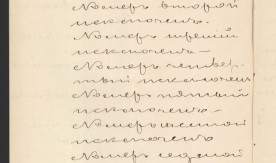 Номеръ второй
исключенъ.
Номеръ третій
исключенъ –
Номеръ четвер-
тый исключенъ
Номеръ пятый
исключенъ –
Номеръ шестой
исключенъ
Номеръ седьмой